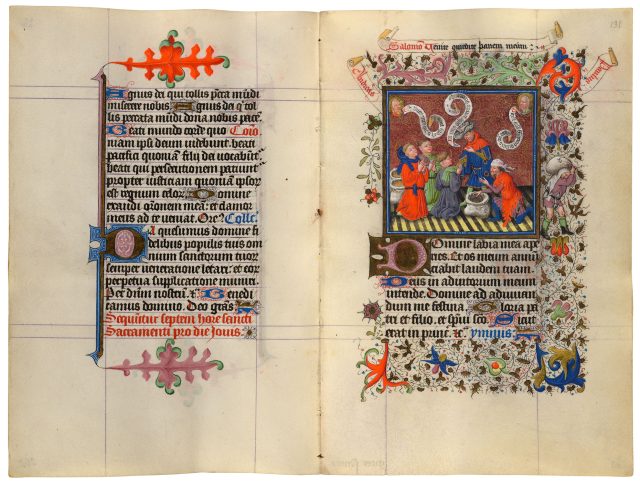 Agnus dei qui tollis pcca mūdi
miserere nobis. Agnus dei q' tol
lis peccata mūdi dona nobis pacē
Beati mundo corde quo Cōio
niam ipsi deum videbunt. beati
pacifici quoniam filij dei vocabūt'
beati qui persecutionem patiunt'
propter iusticiam quoniam ipsor
est regnum celor. Domine
exaudi orōnem meā: et clamor
meus ad te veniat. Ore? Coll'c.
Da quesumus domine fi
delibus populis tuis om
nium sanctorum tuor
semper veneratione letari: et eor
perpetua supplicatione muniri.
Per dnm nostrū. Benedi
camus domino. Deo grās.
Sequūtur septem hore sancti
Sacramenti pro die Jovis.
131
Salomō Venite comedite panem meum:
Domine labia mea ape
ries. Et os meum annū
ciabit laudem tuam.
Deus in adiutorium meum
intende. Domine ad adiuvan
dum me festina. Gloria pa
tri et filio. et spūi sco. Sicut
erat in princ. &c. ymnus: